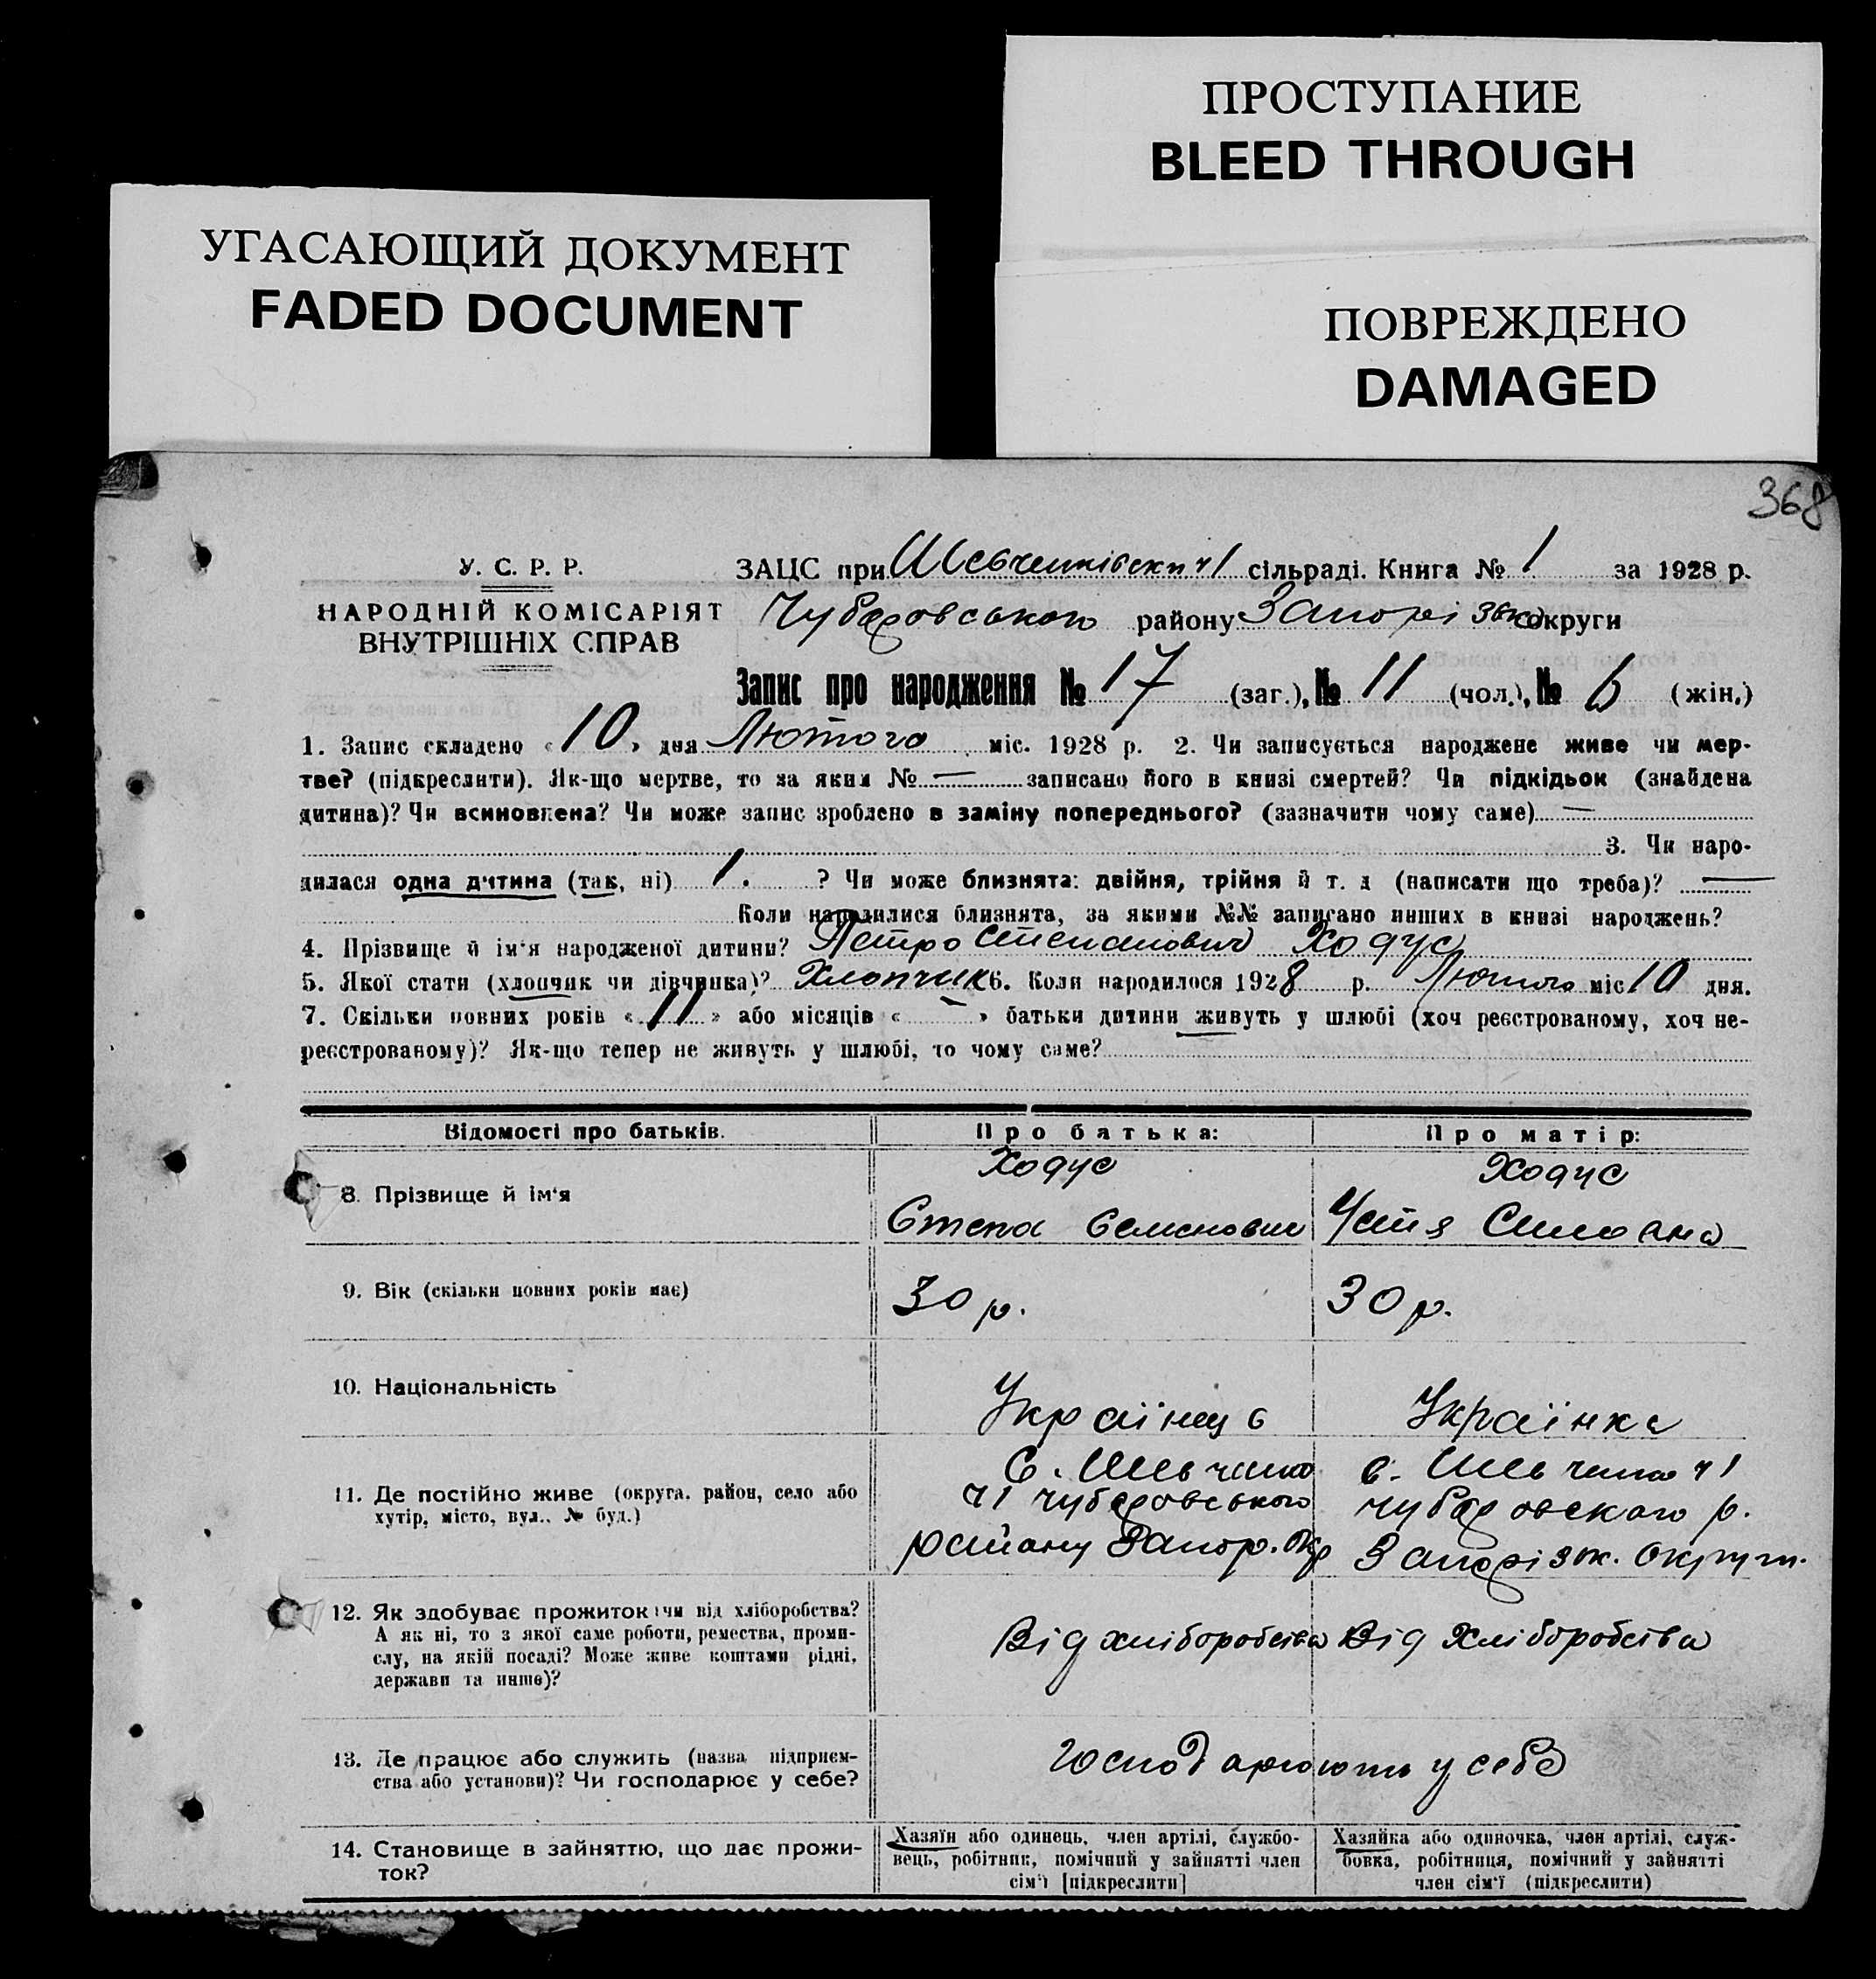 ПРОСТУПАНИЕ
BLEED THROUGH
УГАСАЮЩИЙ ДОКУМЕНТ
FADED DOCUMENT
ПОВРЕЖДЕНО
DAMAGED
368
У. С. Р. Р.
НАРОДНІЙ КОМІСАРІЯТ
ВНУТРІШНІХ СПРАВ
ЗАЦС при Шевченківски ч1 сільраді. Книга № 1 за 1928 р.
Чубаровського району Запорізько округи
Запис про народження № 17 (заг.), № 11 (чол.), № 6 (жін.)
1. Запис складено «10» дня Лютого міс. 1928 р. 2. Чи записується народжене живе чи мер-
тве? (підкреслити). Як-що мертве, то за яким № — записано його в книзі смертей? Чи підкідьок (знайдена
дитина)? Чи всиновлена? Чи може запис зроблено в заміну попереднього? (зазначити чому саме) —
3. Чи наро-
дилася одна дитина (так, ні) 1. ? Чи може близнята: двійня, трійня й т. д (написати що треба)? —
Коли народилися близнята, за якими №№ записано инших в книзі народжень?
4. Прізвище й ім'я народженої дитини? Петро Степанович Ходус
5. Якої стати (хлопчик чи дівчинка)? Хлопчик 6. Коли народилося 1928 р. Лютого міс 10 дня.
7. Скільки повних років «11» або місяців « — » батьки дитини живуть у шлюбі (хоч реєстрованому, хоч не-
реєстрованому)? Як-що тепер не живуть у шлюбі, то чому саме?
Відомості про батьків. Про батька: Про матір:
8. Прізвище й ім'я
Ходус
Степа Семенович
Ходус
Устя
9. Вік (скільки повних років має) 30 р. 30 р.
10. Національність Українец Українка
11. Де постійно живе (округа, район, село або
хутір, місто, вул., № буд.)
С. Шевченко
ч1 Чубаровського
району Запор. Окр
с. Шевченко ч1
Чубаровского р.
Запорізьк. Округи.
12. Як здобуває прожиток: чи від хліборобства?
А як ні, то з якої саме роботи, ремества, проми-
слу, на якій посаді? Може живе коштами рідні,
держави та инше)?
Від хліборобства Від Хліборобства
13. Де працює або служить (назва підприєм-
ства або установи)? Чи господарює у себе?
Господарюють у себе
14. Становище в зайняттю, що дає прожи-
ток?
Хазяїн або одинець, член артілі, службо-
вець, робітник, помічний у зайнятті член
сім'ї [підкреслити]
Хазяйка або одиночка, член артілі, служ-
бовка, робітниця, помічний у зайнятті
член сім'ї (підкреслити)